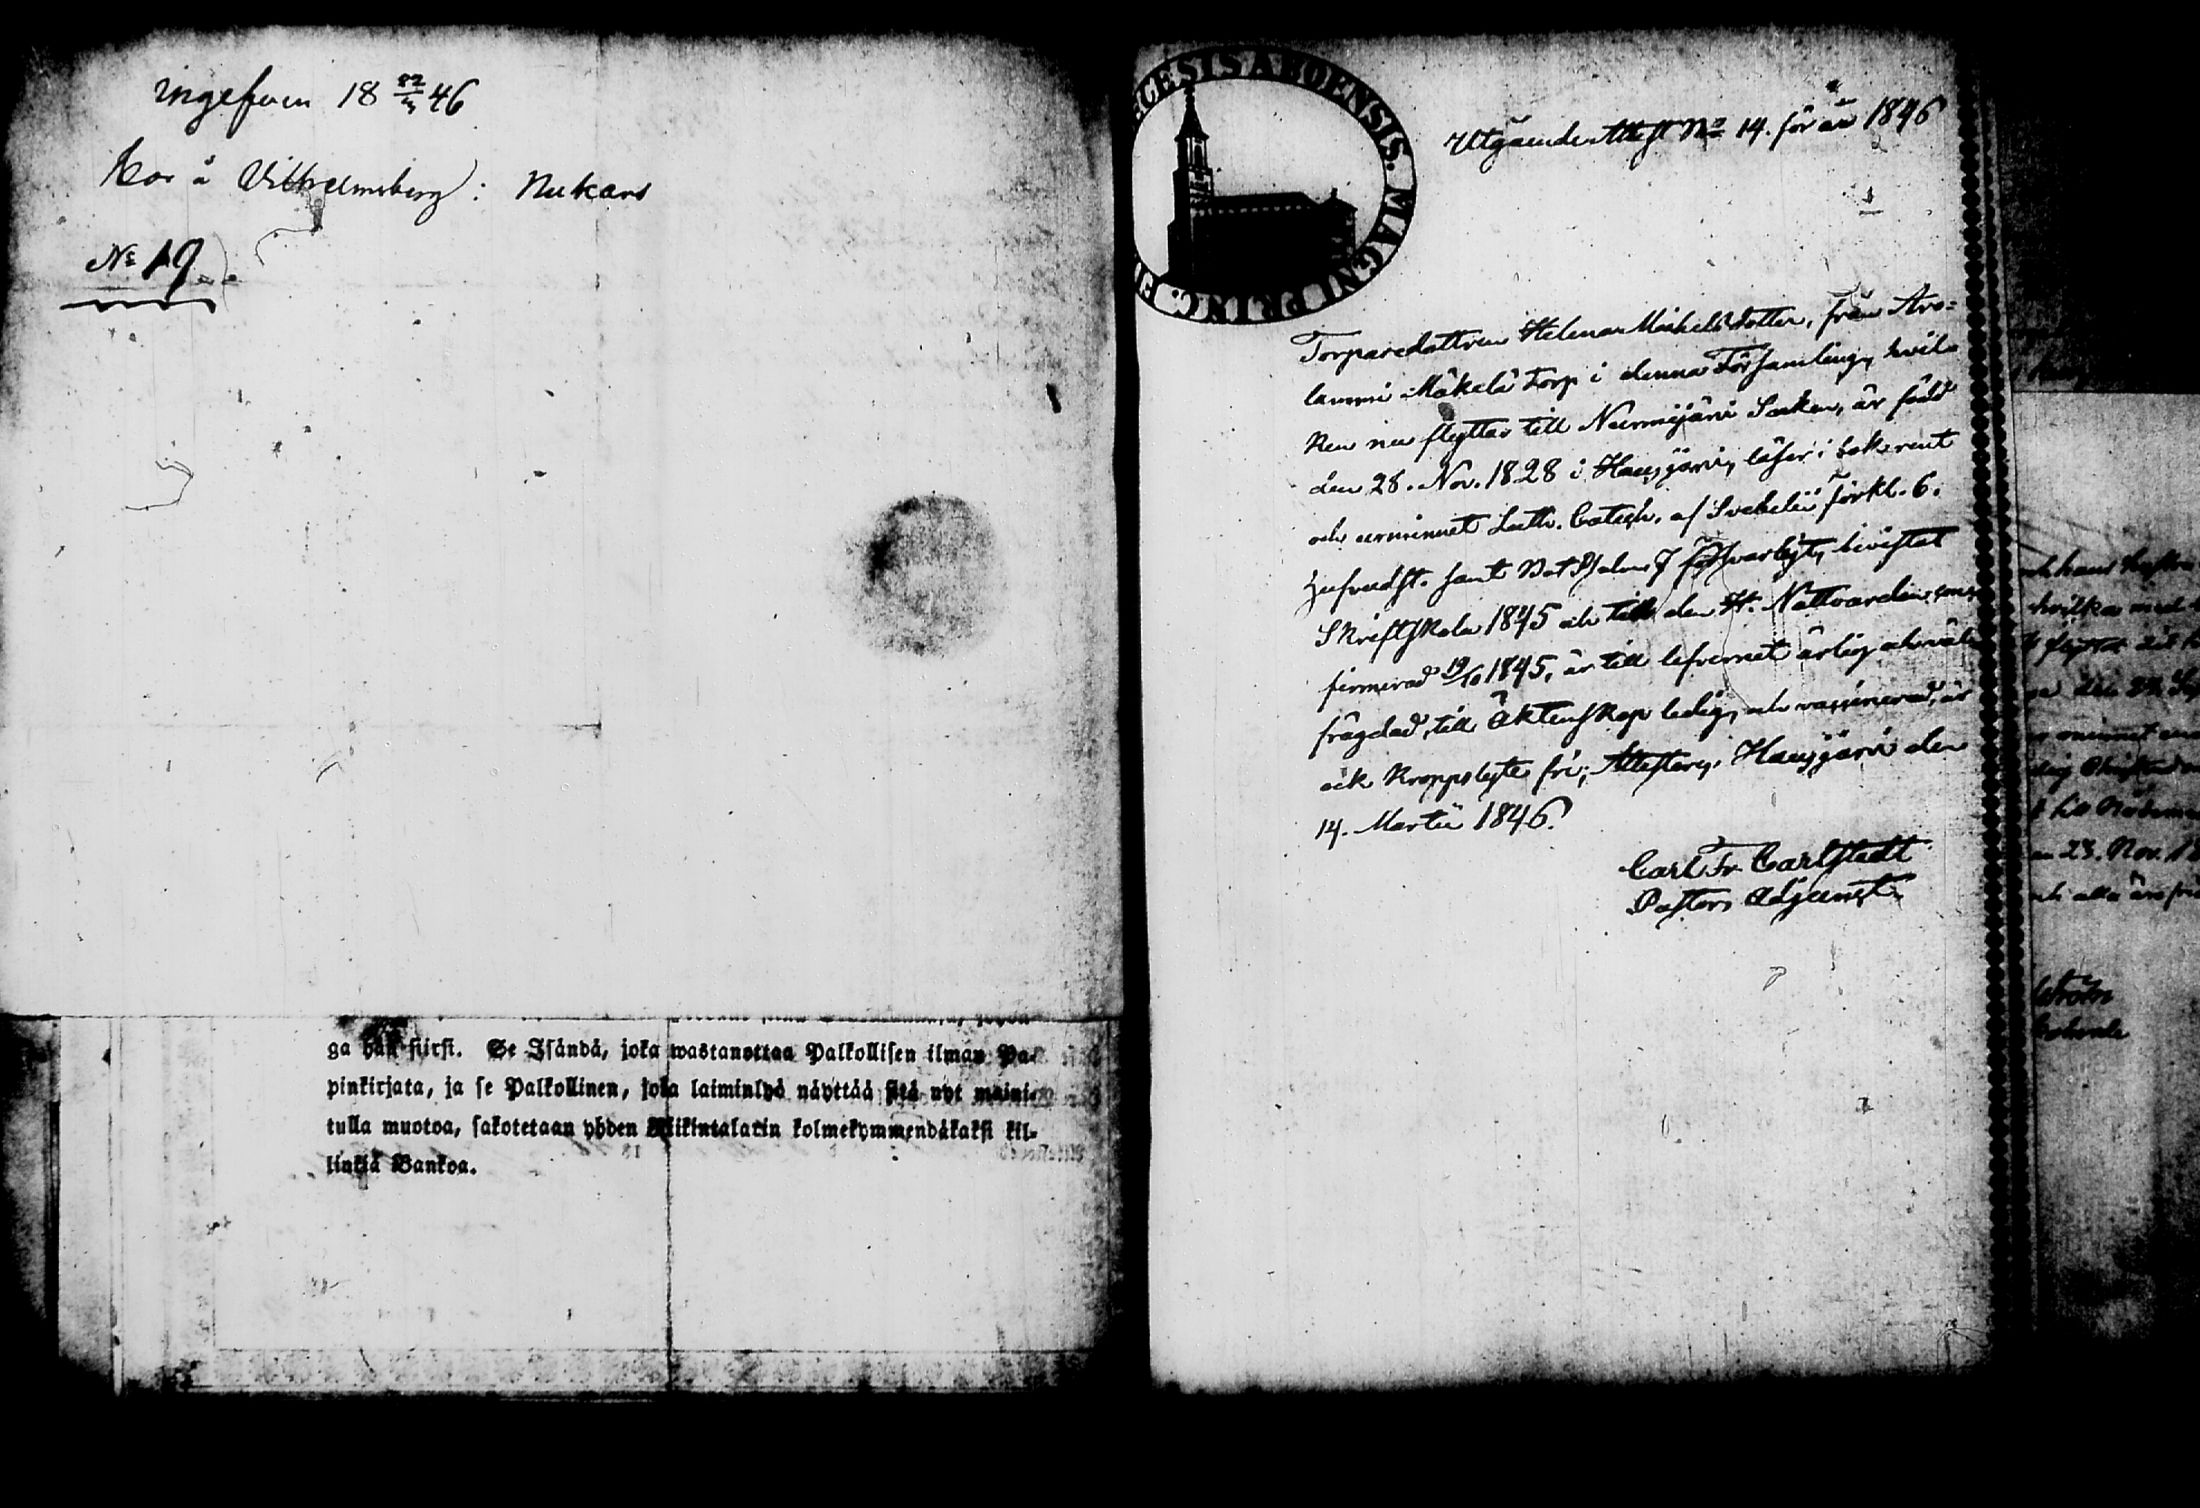 Ingefven 18 22/3 46
Bor å Vilhelmsberg: Nukars
No 19.
ga hän siirsi. Se Isändä, joka wastanottaa Palkollisen ilman Pa-
pinkirjata, ja se Palkollinen, joka laiminlyö näyttää sitä nyt maini-
tulla muotoa, sakotetaan yhden Riikintalarin kolmekymmendäkaksi kil-
linkiä Bankoa.
ECESIS ABOENSIS. MAGNI PRINC.
Utgående Attest No 14. för år 1846
Torparedottren Helena Michelsdotter, från Aro-
lammi Mäkelä Torp i denna Församling, hvil-
ken nu flyttar till Nurmijärvi Socken, är född
den 28. Nov. 1828 i Hausjärvi, läser i bok rent
och urminnet Luth. Catech. af Svebelii Förkl. 6.
Hufvudst. samt Bot Psalm. 7 försvarligt, bivistat
Skriftskola 1845 och till den H. Nattvarden con-
firmerad 19/10 1845, är till lefvernet ärlig och väl-
frägdad, till Äktenskap ledig, och vaccinerad, är
ock kroppslyte fri; Attesterar. Hausjärvi den
14. Martii 1846.
Carl Fr. Carlstedt
Pastors Adjunct.
hvilka med
23. Nov.